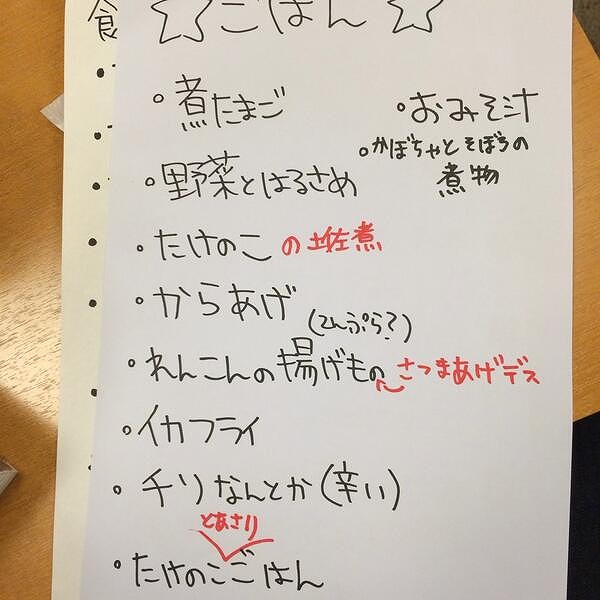 食
☆ごはん☆
・煮たまご
・おみそ汁
・野菜とはるさめ
・かぼちゃとそぼろの
煮物
・たけのこの土佐煮
・からあげ
(てんぷら?)
・れんこんの揚げもの さつまあげデス
・イカフライ
・チリなんとか(辛い)
とあさり
・たけのこごはん